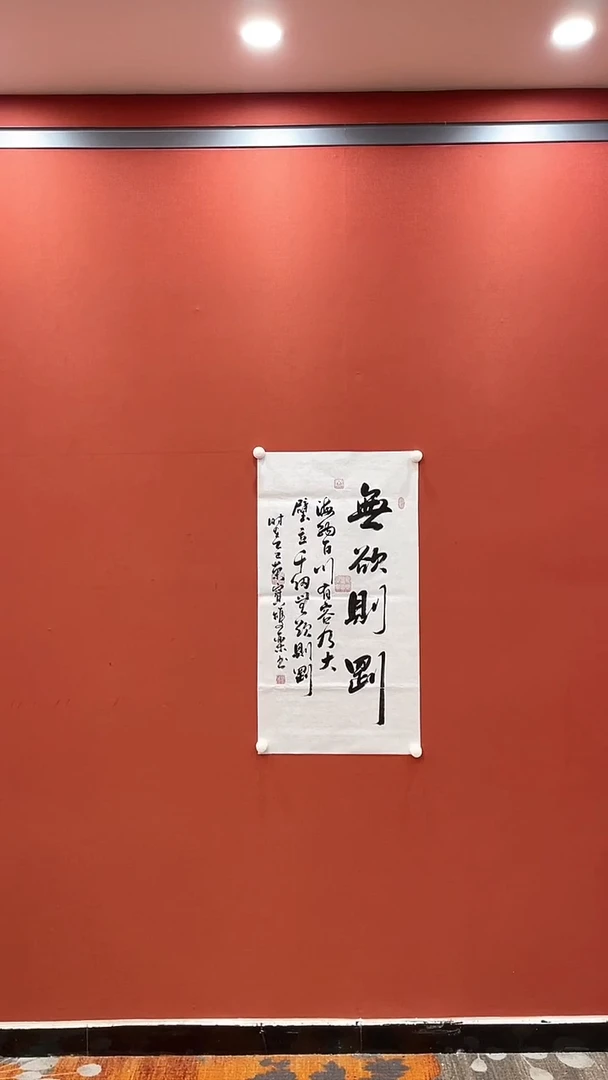 無欲則剛
海納百川有容乃大
壁立千仞無欲則剛
時在乙巳
書